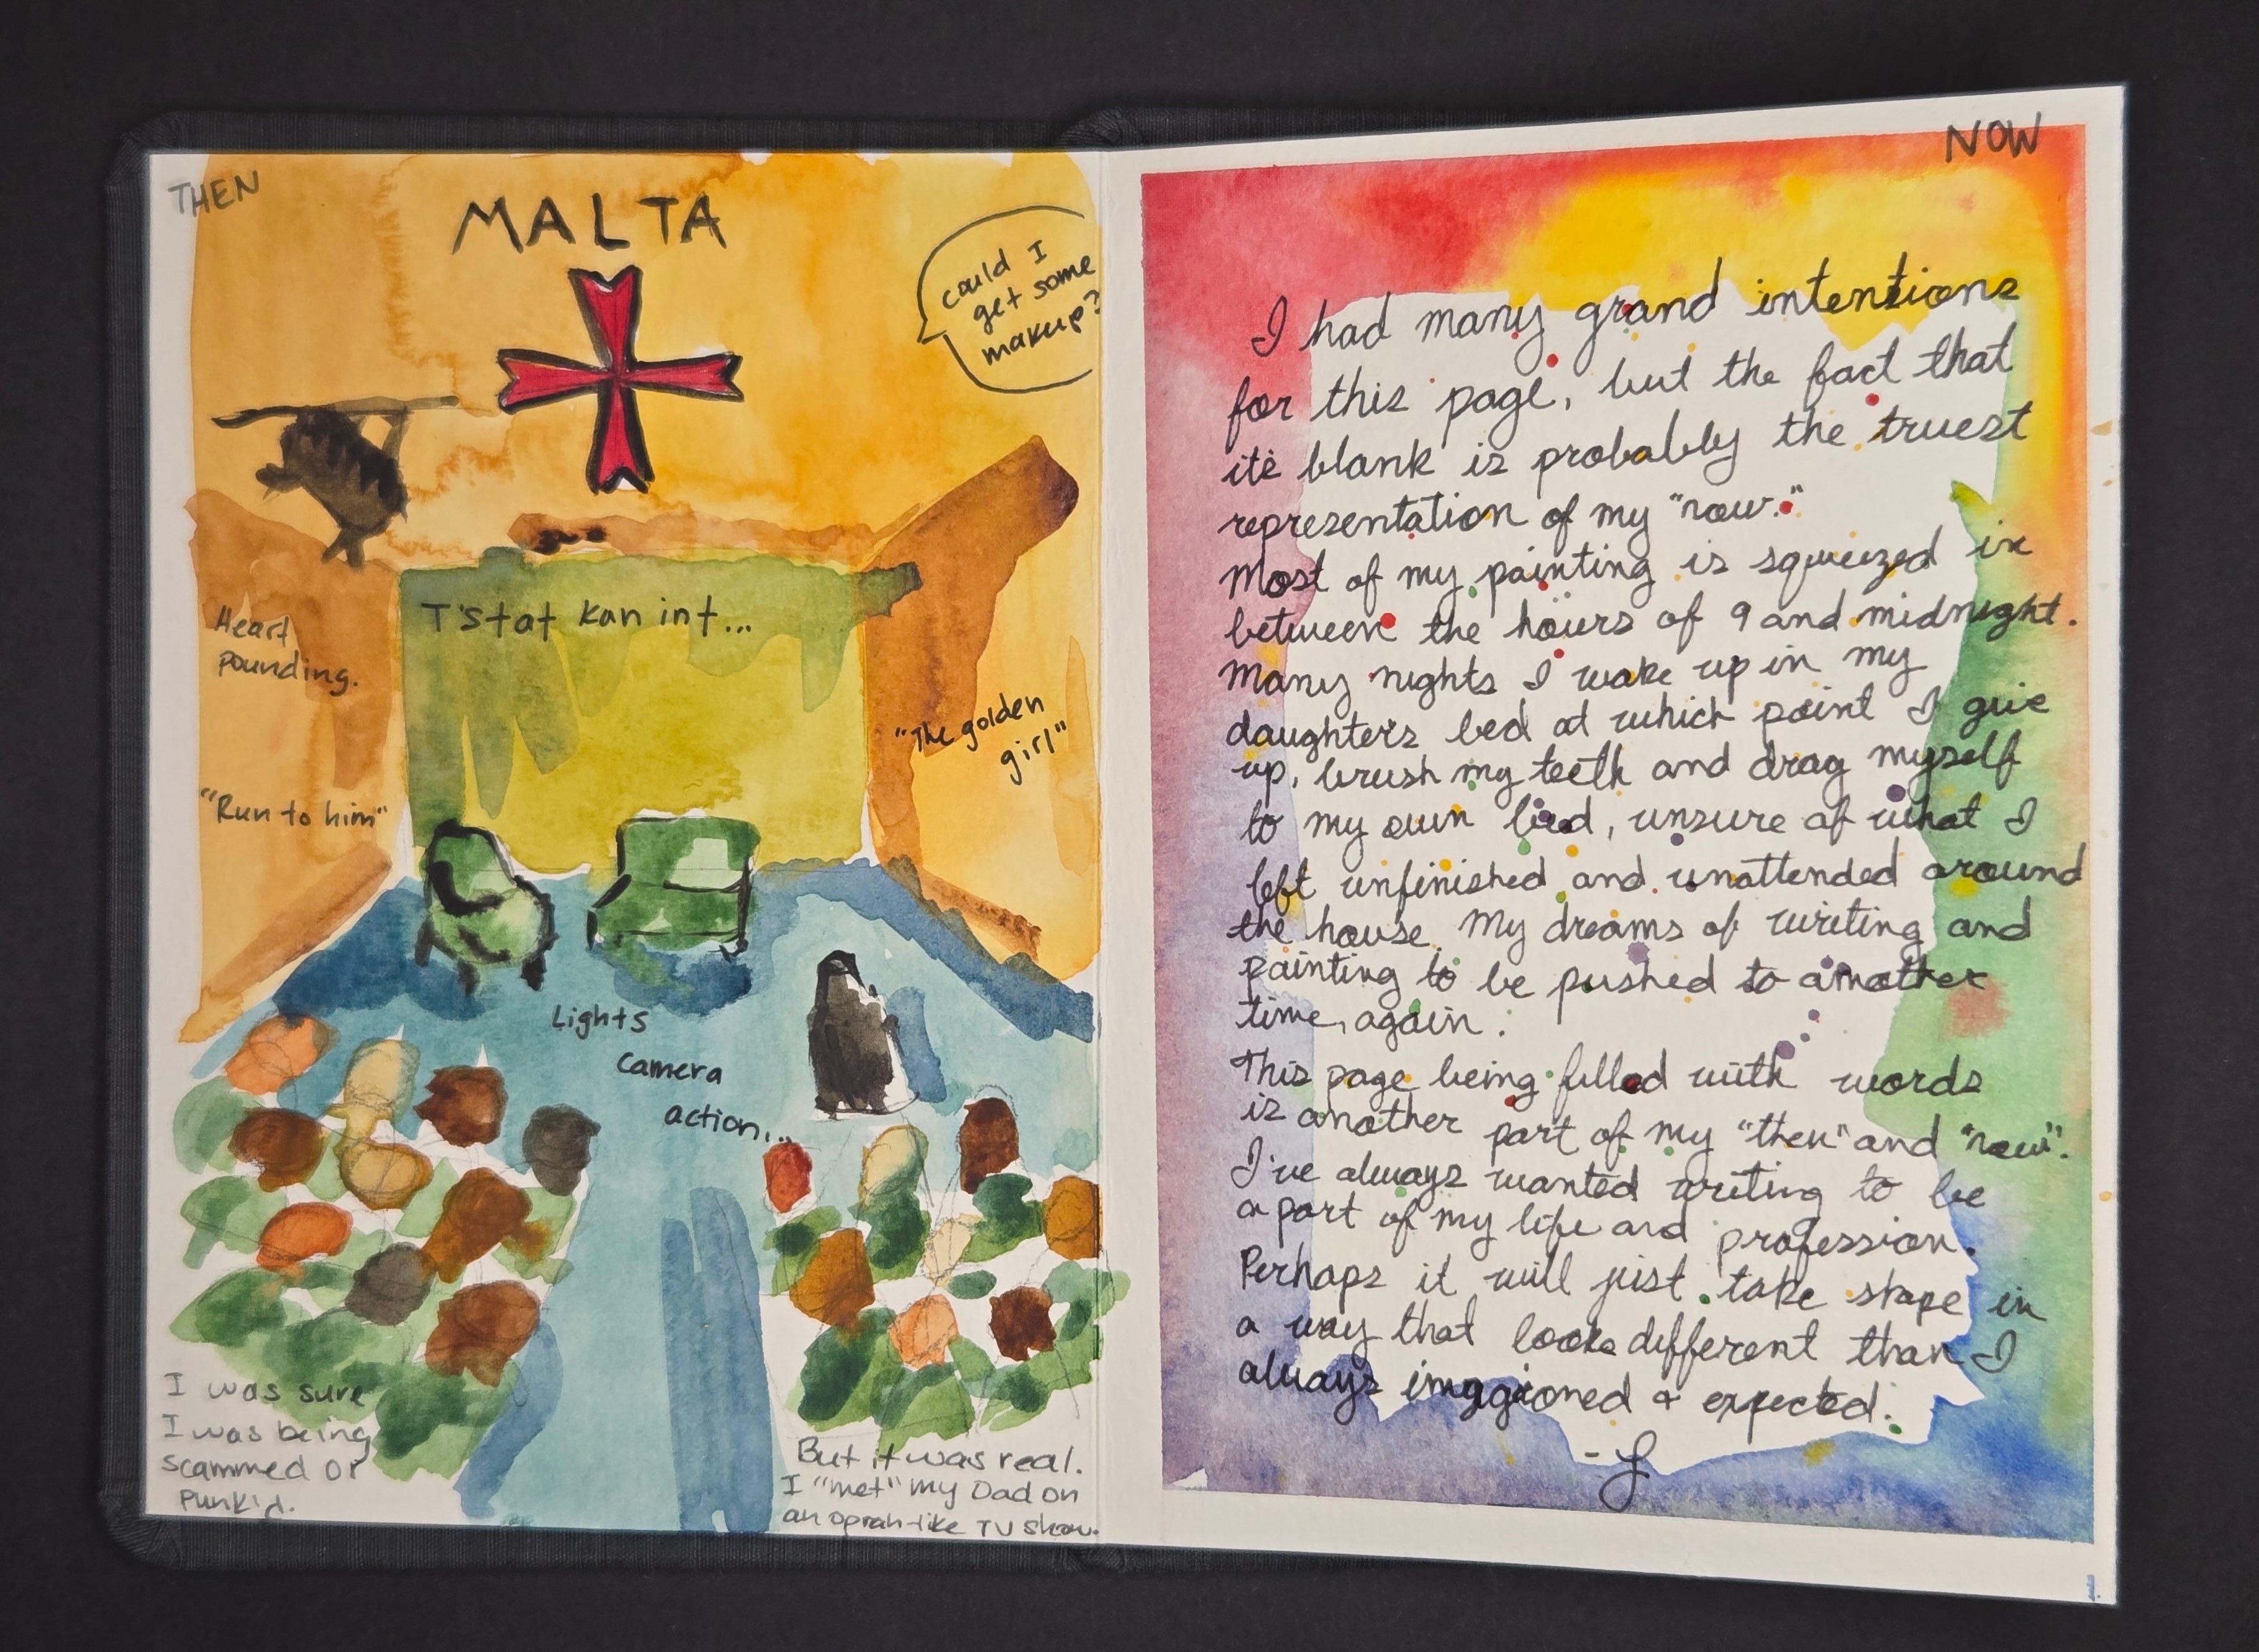 THEN
MALTA
could I
get some
makeup?
T'stat kan int...
Heart
pounding.
"The golden
girl"
"Run to him"
Lights
camera
action...
I was sure
I was being
scammed or
Punk'd.
But it was real.
I "met" my Dad on
an oprah-like TV show.
NOW
I had many grand intentions
for this page, but the fact that
it's blank is probably the truest
representation of my "now."
Most of my painting is squeezed in
between the hours of 9 and midnight.
Many nights I wake up in my
daughter's bed at which point I give
up, brush my teeth and drag myself
to my own bed, unsure of what I
left unfinished and unattended around
the house. My dreams of writing and
painting to be pushed to another
time, again.
This page being filled with words
is another part of my "then" and "now".
I've always wanted writing to be
a part of my life and profession.
Perhaps it will just take shape in
a way that looks different than I
always imagioned & expected.